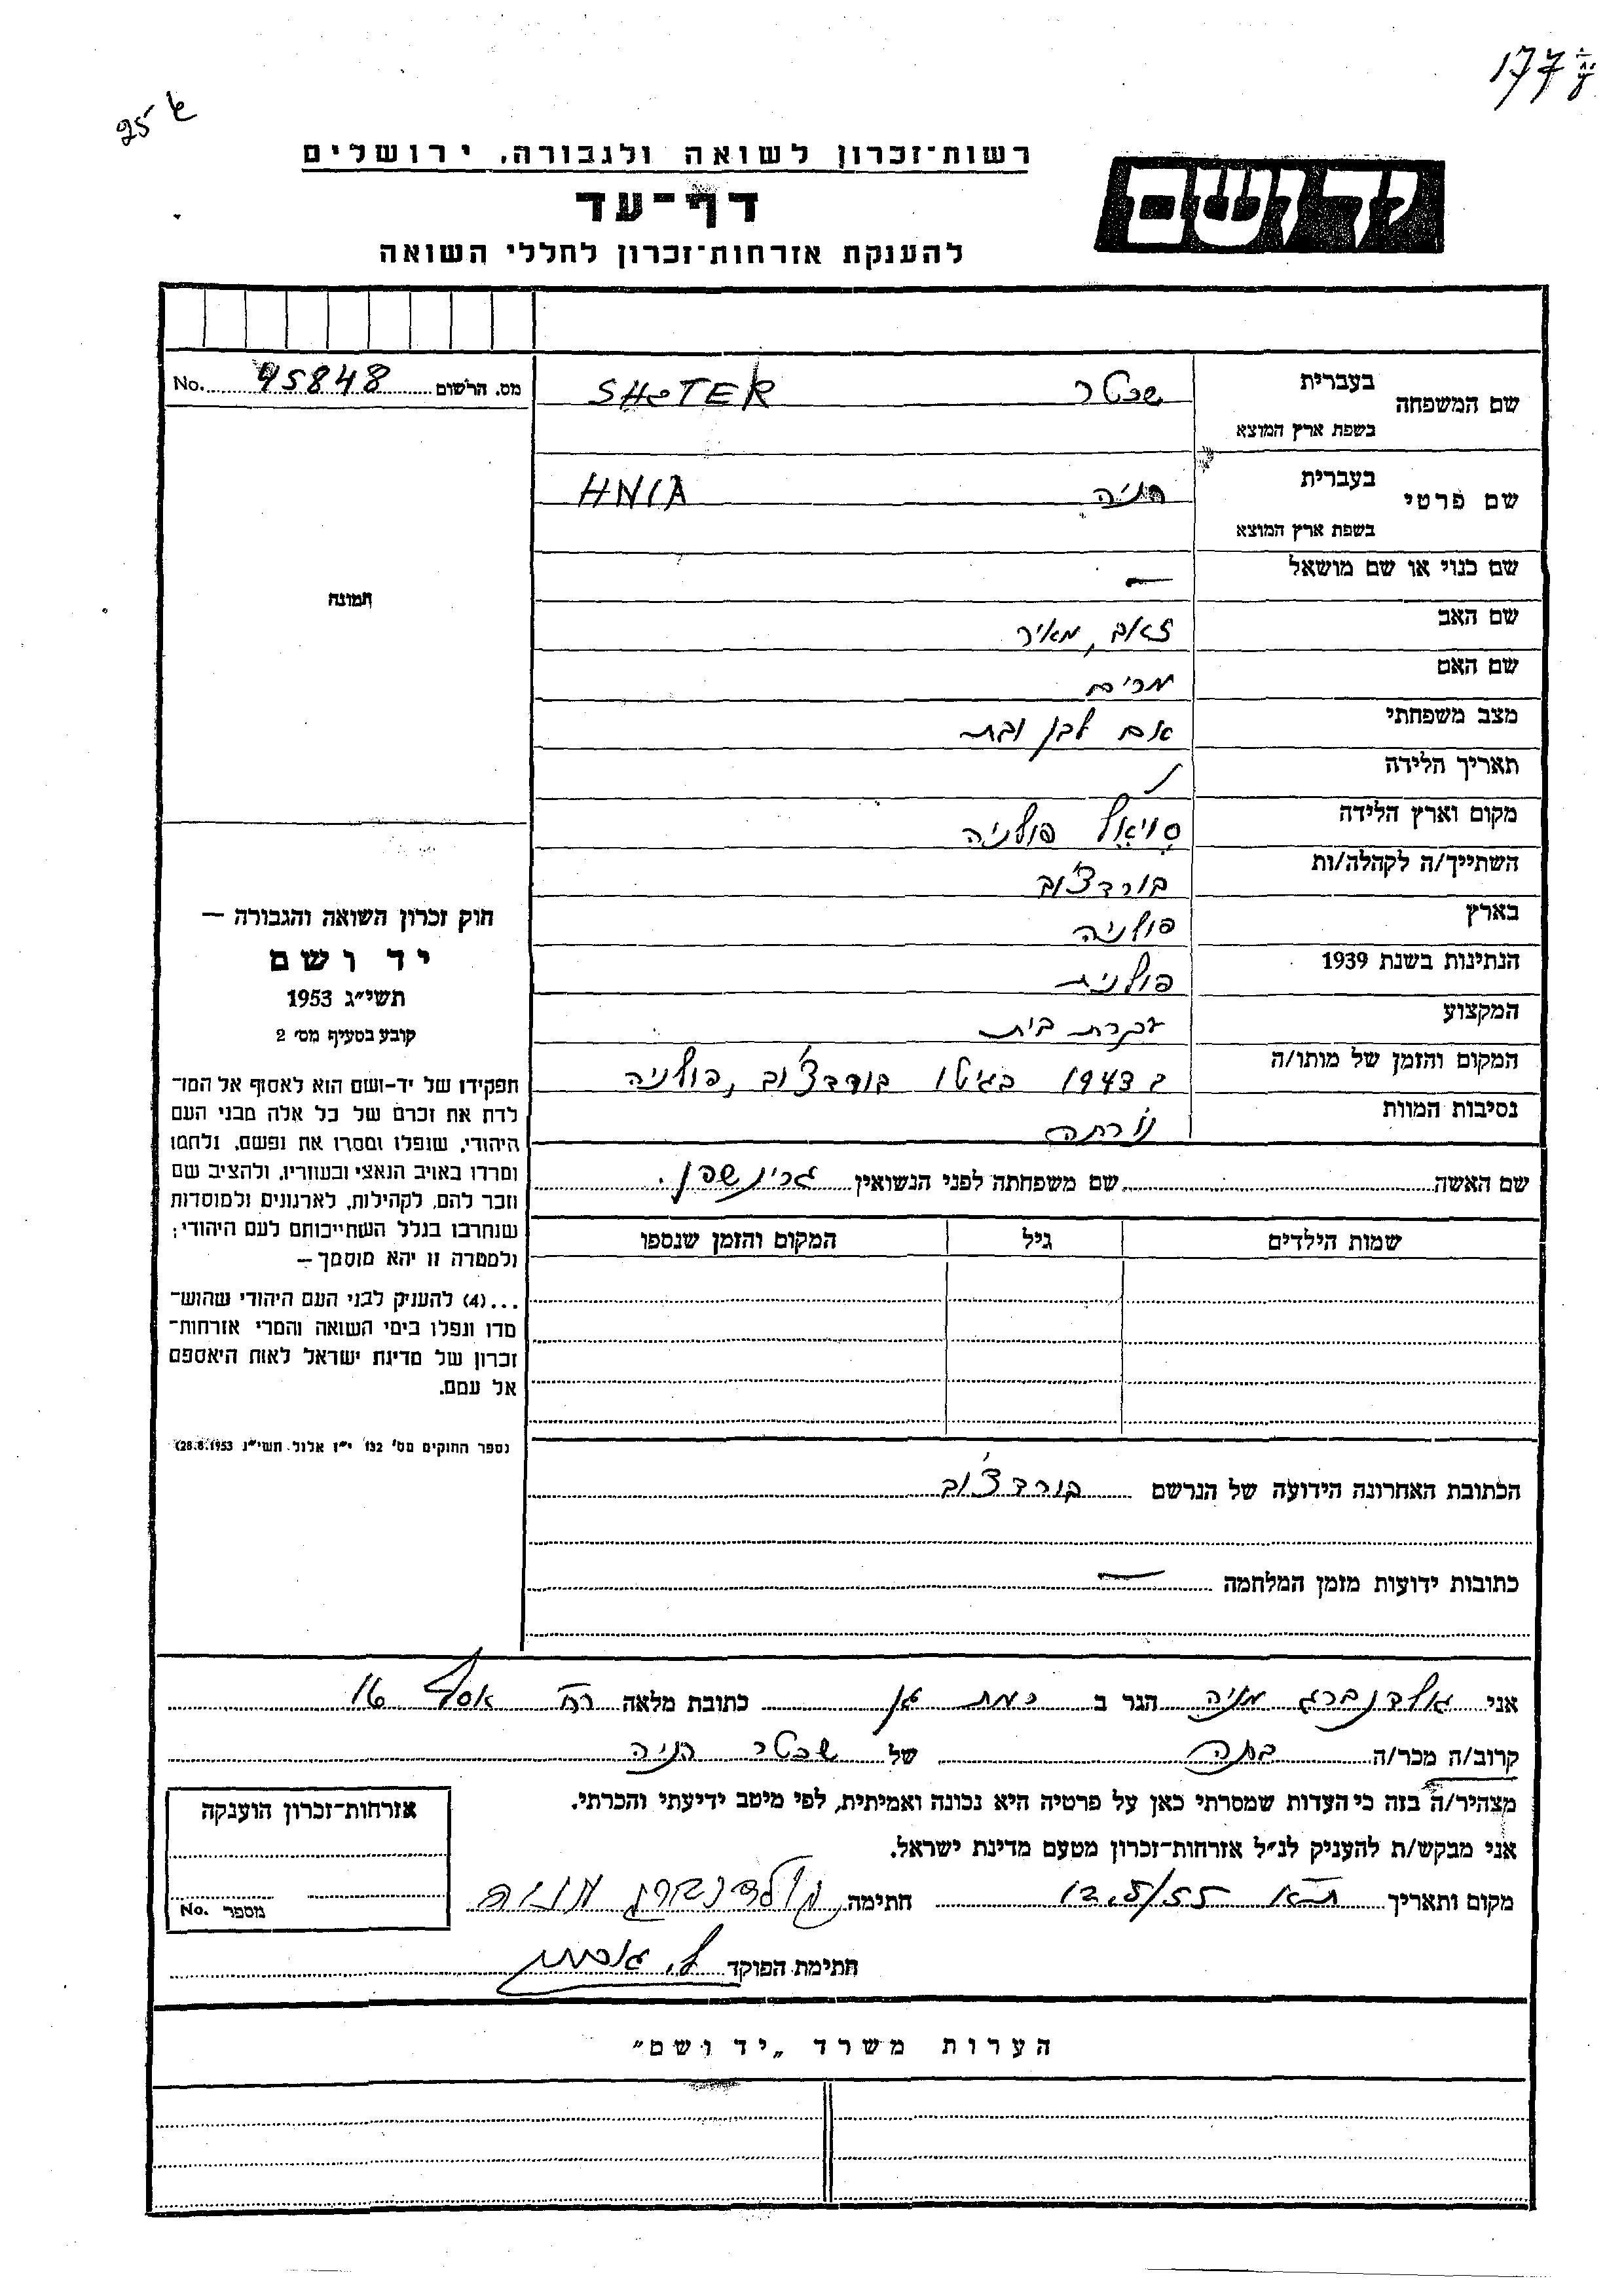 177
25
רשות־זכרון לשואה ולגבורה, ירושלים
יד ושם
דף־עד
להענקת אזרחות־זכרון לחללי השואה
No. 45848 מס. הרשום
שם המשפחה בעברית שכטר SHETER
בשפת ארץ המוצא
שם פרטי בעברית הניה HNIA
בשפת ארץ המוצא
שם כנוי או שם מושאל —
תמונה
שם האב זאב, מאיר
שם האם מרים
מצב משפחתי אם לבן ובת
תאריך הלידה
מקום וארץ הלידה פולניה
השתייך/ה לקהלה/ות בורדצ'וב
בארץ פולניה
הנתינות בשנת 1939 פולנית
המקצוע עקרת בית
המקום והזמן של מותו/ה ב 1943 בגיטו בורדצ'וב, פולניה
נסיבות המוות נורתה
שם האשה שם משפחתה לפני הנשואין גרינשפן.
שמות הילדים גיל המקום והזמן שנספו
חוק זכרון השואה והגבורה —
יד ושם
תשי״ג 1953
קובע בסעיף מס׳ 2
תפקידו של יד־ושם הוא לאסוף אל המו־
לדת את זכרם של כל אלה מבני העם
היהודי, שנפלו ומסרו את נפשם, נלחמו
ומרדו באויב הנאצי ובעוזריו, ולהציב שם
וזכר להם, לקהילות, לארגונים ולמוסדות
שנחרבו בגלל השתייכותם לעם היהודי;
ולמטרה זו יהא מוסמך —
...(4) להעניק לבני העם היהודי שהוש־
מדו ונפלו בימי השואה והמרי אזרחות־
זכרון של מדינת ישראל לאות היאספם
אל עמם.
(ספר החוקים מס׳ 132 י״ז אלול תשי״ג 28.8.1953)
הכתובת האחרונה הידועה של הנרשם בורדצ'וב
כתובות ידועות מזמן המלחמה —
אני גולדנברג מניה הגר ב רמת גן כתובת מלאה רח' 16
קרוב/ה מכר/ה בתה של שכטר הניה
מצהיר/ה בזה כי העדות שמסרתי כאן על פרטיה היא נכונה ואמיתית, לפי מיטב ידיעתי והכרתי.
אני מבקש/ת להעניק לנ״ל אזרחות־זכרון מטעם מדינת ישראל.
מקום ותאריך ת״א 12.5/55 חתימה גולדנברג מניה
חתימת הפוקד
אזרחות־זכרון הוענקה
No. מספר
הערות משרד „יד ושם״